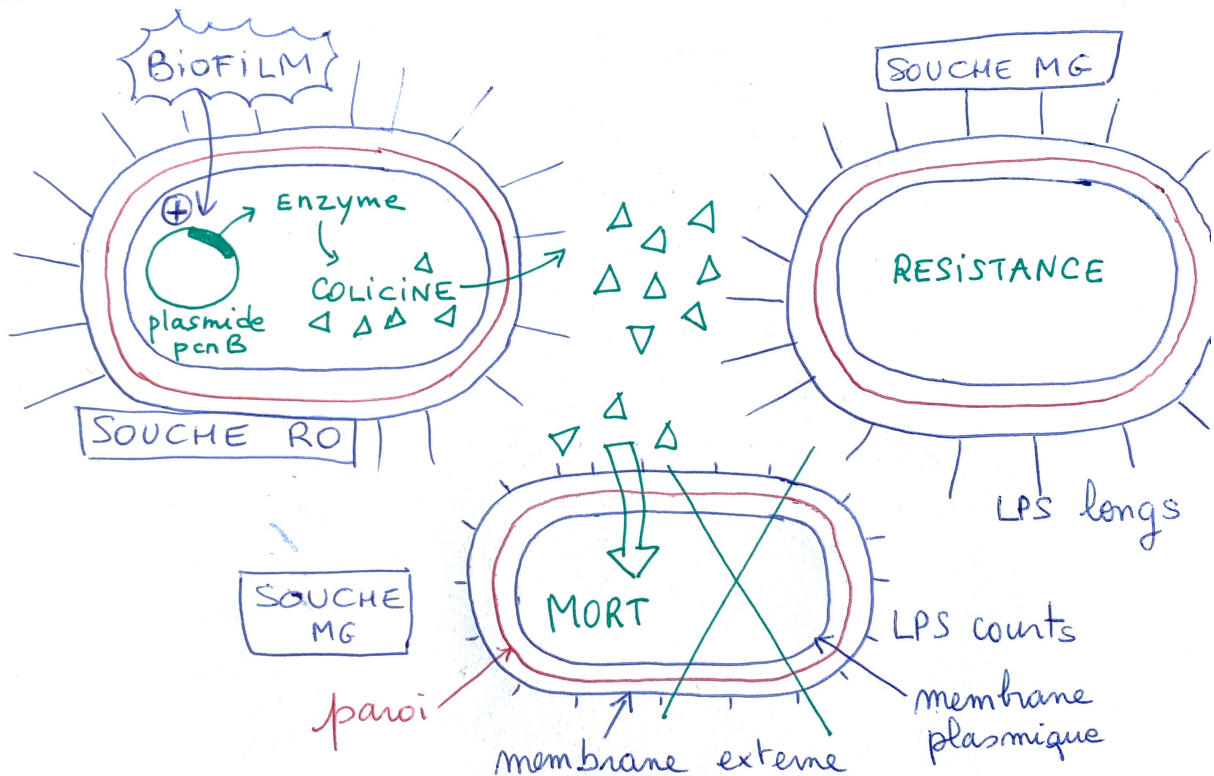 BiOFiLM
SOUCHE MG
+
Enzyme
COLICiNE
plasmide
pcnB
RESiSTANCE
SOUCHE RO
LPS longs
SOUCHE
MG
MORT
LPS courts
paroi
membrane
plasmique
membrane externe